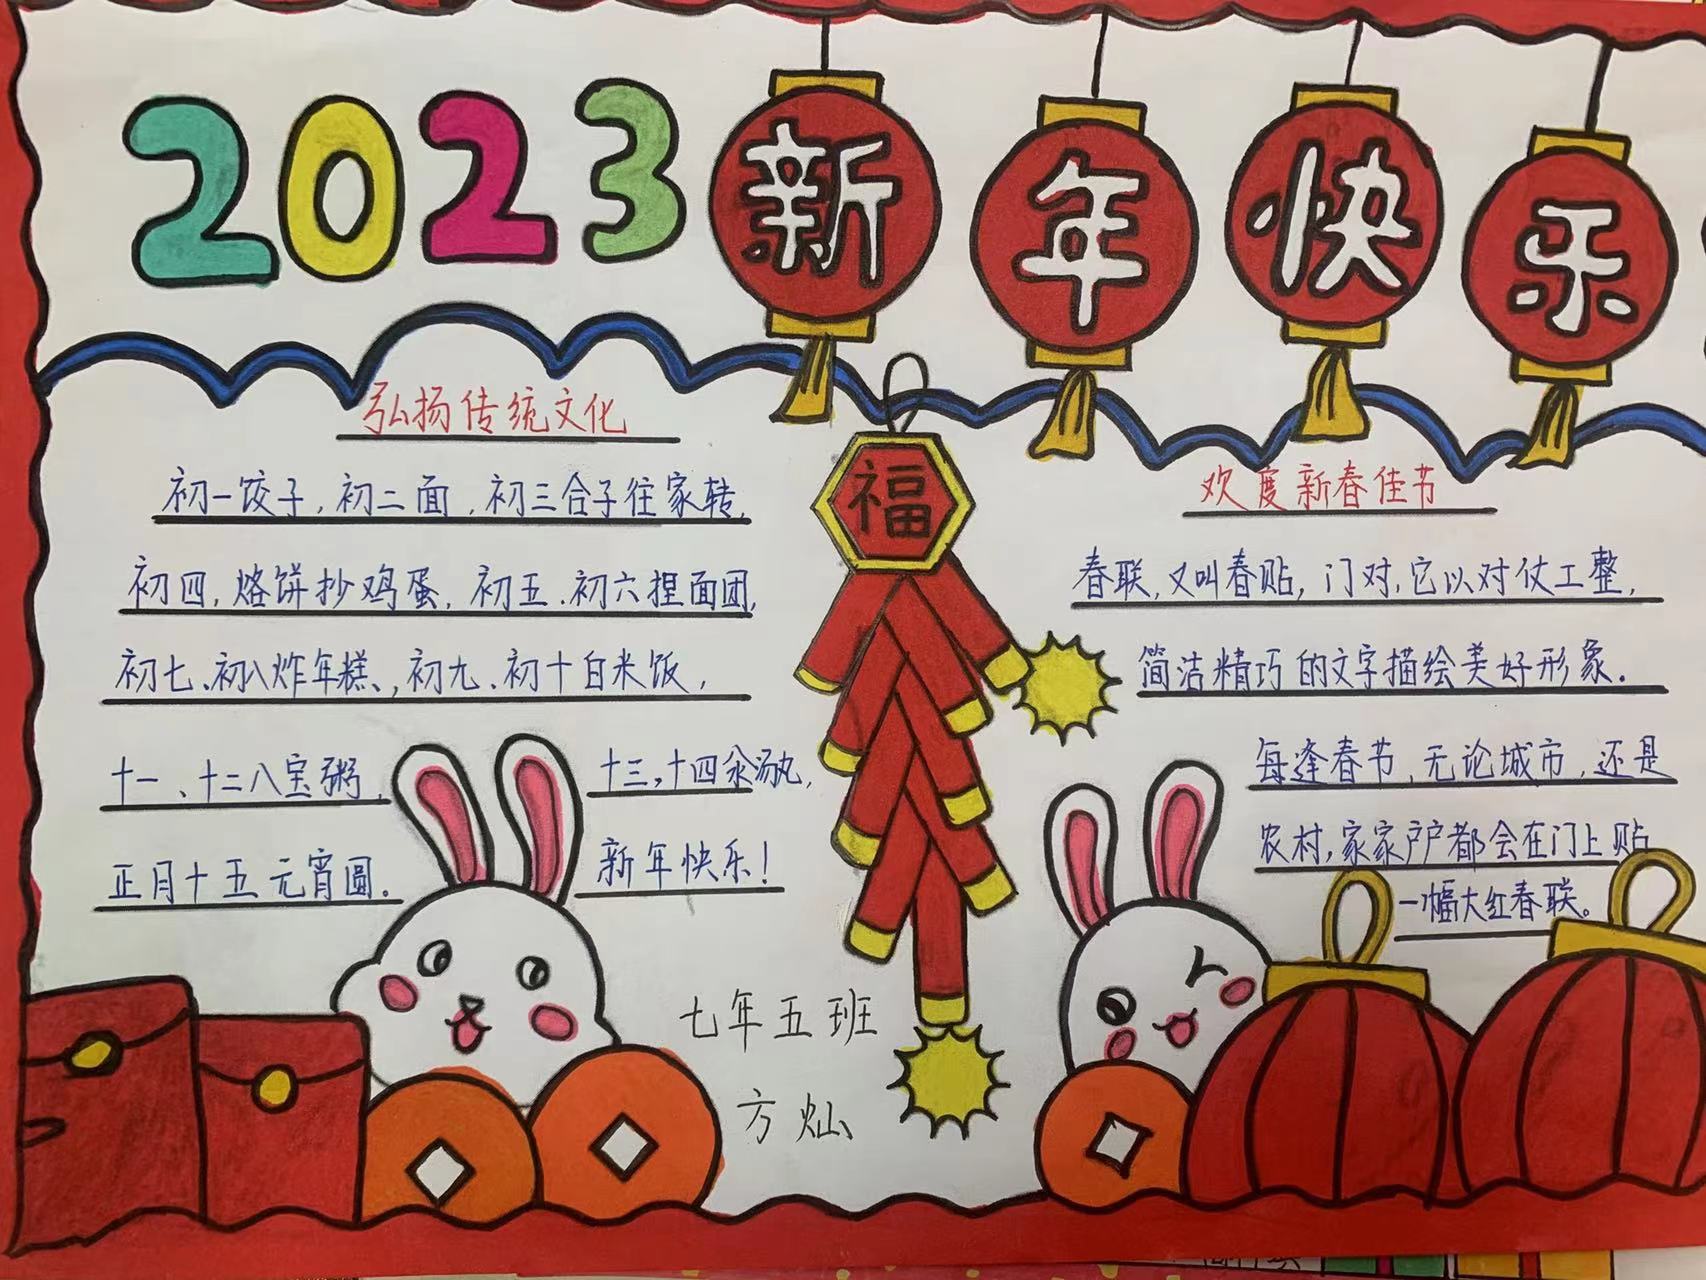 2023
新年快乐
弘扬传统文化
初一饺子,初二面,初三合子往家转,
初四,烙饼抄鸡蛋,初五、初六捏面团,
初七、初八炸年糕、,初九、初十白米饭,
十一、十二八宝粥,十三,十四汆汤丸,
正月十五元宵圆.
新年快乐!
福
欢度新春佳节
春联,又叫春贴,门对,它以对仗工整,
简洁精巧的文字描绘美好形象.
每逢春节,无论城市,还是
农村,家家户户都会在门上贴
一幅大红春联。
七年五班
方灿